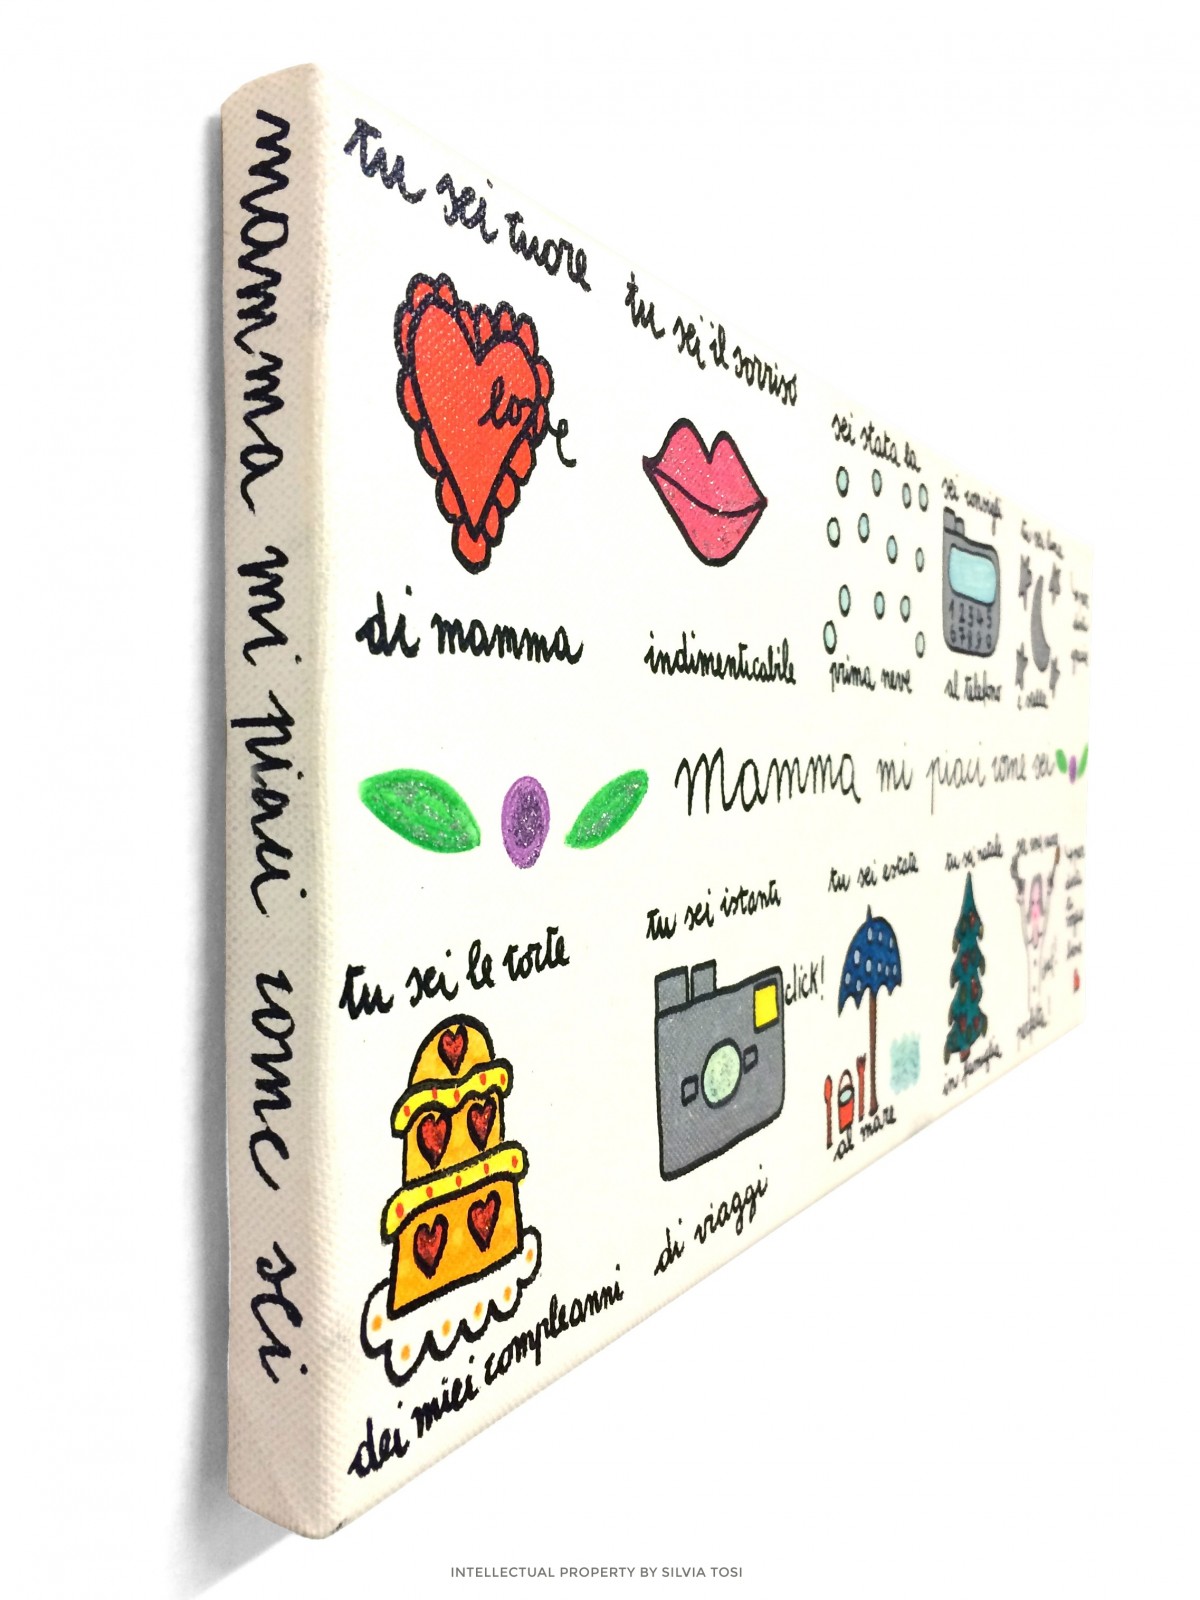 mamma mi piaci come sei
tu sei cuore
love
di mamma
tu sei il sorriso
indimenticabile
sei stata la
prima neve
sei consigli
1 2 3 4 5
6 7 8 9 0
al telefono
tu sei luna
e stelle
Mamma mi piaci come sei
tu sei le torte
dei miei compleanni
tu sei istanti
click!
di viaggi
tu sei estate
al mare
tu sei natale
in famiglia
perfetta!
INTELLECTUAL PROPERTY BY SILVIA TOSI